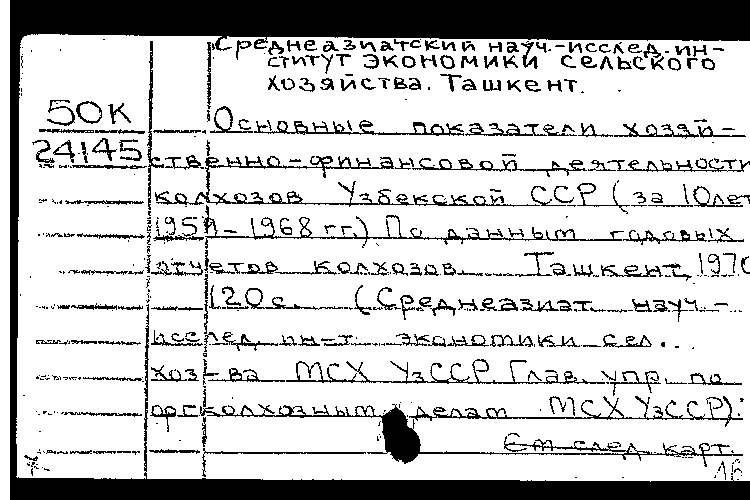 Среднеазиатский науч.-исслед. ин-
ститут экономики сельского
хозяйства. Ташкент.
50К
24145
Основные показатели хозяй-
ственно-финансовой деятельности
колхозов Узбекской ССР (за 10 лет
1959-1968 гг.) По данным годовых
отчетов колхозов. Ташкент, 1970
120 с. (Среднеазиат. науч-
исслед. ин-т экономики сел...
хоз-ва МСХ УзССР. Глав. упр. по
оргколхозным делам МСХ УзССР).
См след. карт.
16